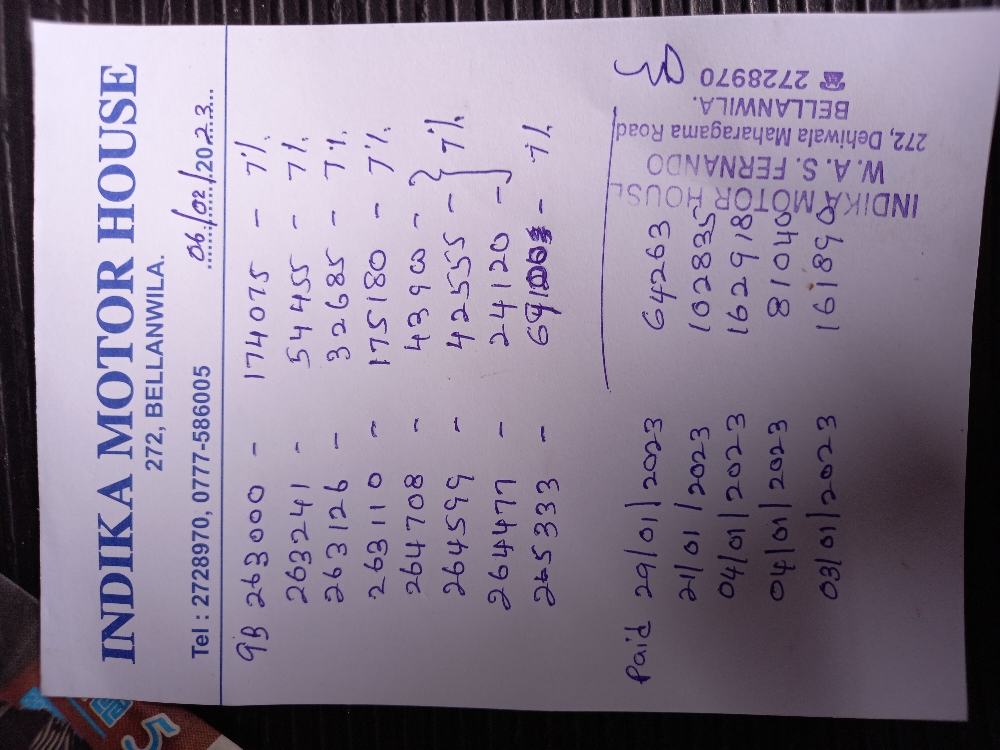 INDIKA MOTOR HOUSE
272, BELLANWILA.
Tel : 2728970, 0777-586005 06/02/2023
GB 263000 - 174075 - 7%
263241 - 5455 - 7%
263126 - 32685 - 7%
263110 - 175180 - 7%
264708 - 43900 -
264599 - 42555 - } 7%
264477 - 24120 -
265333 - - 7%
Paid 29/01/2023 64263
21/01/2023 102835
04/01/2023 162918
04/01/2023 81040
03/01/2023 161890
INDIKA MOTOR HOUSE
W. A. S. FERNANDO
272, Dehiwala Maharagama Road
BELLANWILA.
☎ 2728970